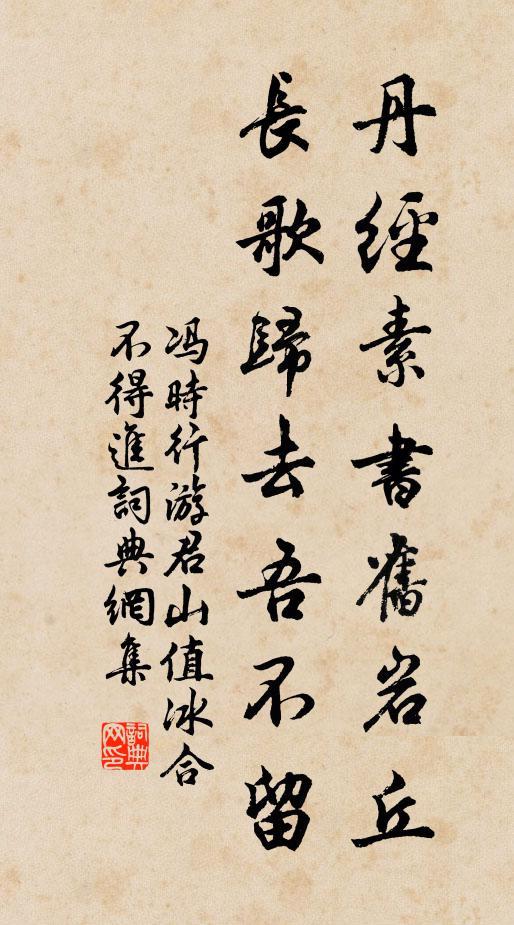 丹經素書舊岩丘
長歌歸去吾不留
冯時行游君山值冰合
不得進詞典網集
詞典网印